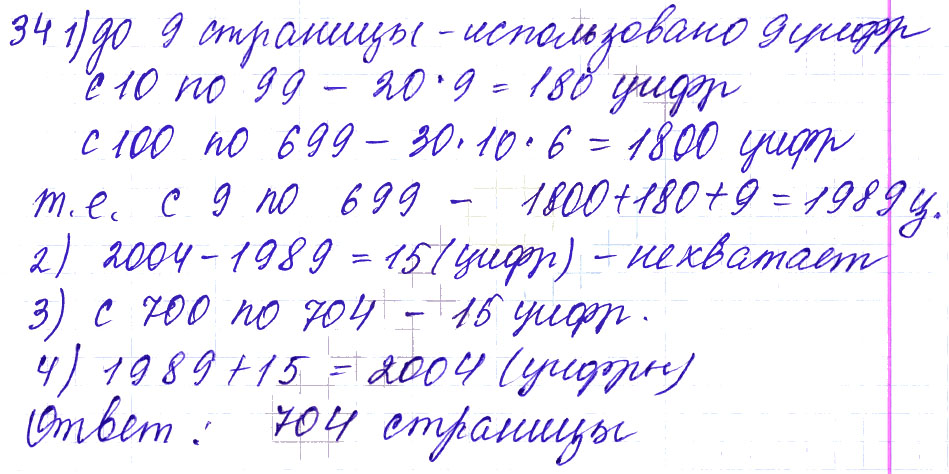 34 1) до 9 страницы - использовано 9 цифр
с 10 по 99 - 20·9 = 180 цифр
с 100 по 699 - 30·10·6 = 1800 цифр
т.е. с 9 по 699 - 1800+180+9 = 1989 ц.
2) 2004-1989 = 15 (цифр) - не хватает
3) с 700 по 704 - 15 цифр.
4) 1989+15 = 2004 (цифры)
Ответ: 704 страницы